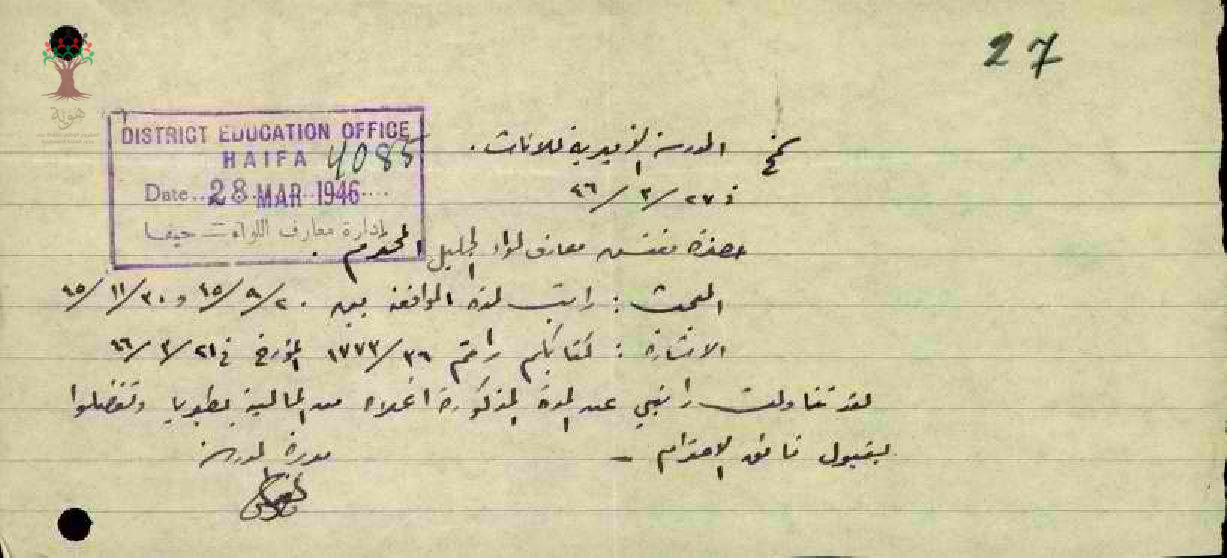 27
DISTRICT EDUCATION OFFICE
HAIFA 4085
Date .. 28 MAR 1946 ....
ادارة معارف اللواء - حيفا
هوية
سمخ المدرسة الاميرية للاناث .
في ٢٧/٣/٤٦
حضرة مفتش معارف لواء الجليل المحترم .
المبحث : راتب لمدة الواقعة بين ٢٠/٩/٤٥ و ٣٠/١١/٤٥
الاشارة : كتابكم رقم ١٧٧٣/٣٦ المؤرخ في ٢١/٣/٤٦
لقد تناولت راتبي عن المدة المذكورة اعلاه من المالية بطبريا وتفضلوا
بقبول فائق الاحترام -
مديرة المدرسة